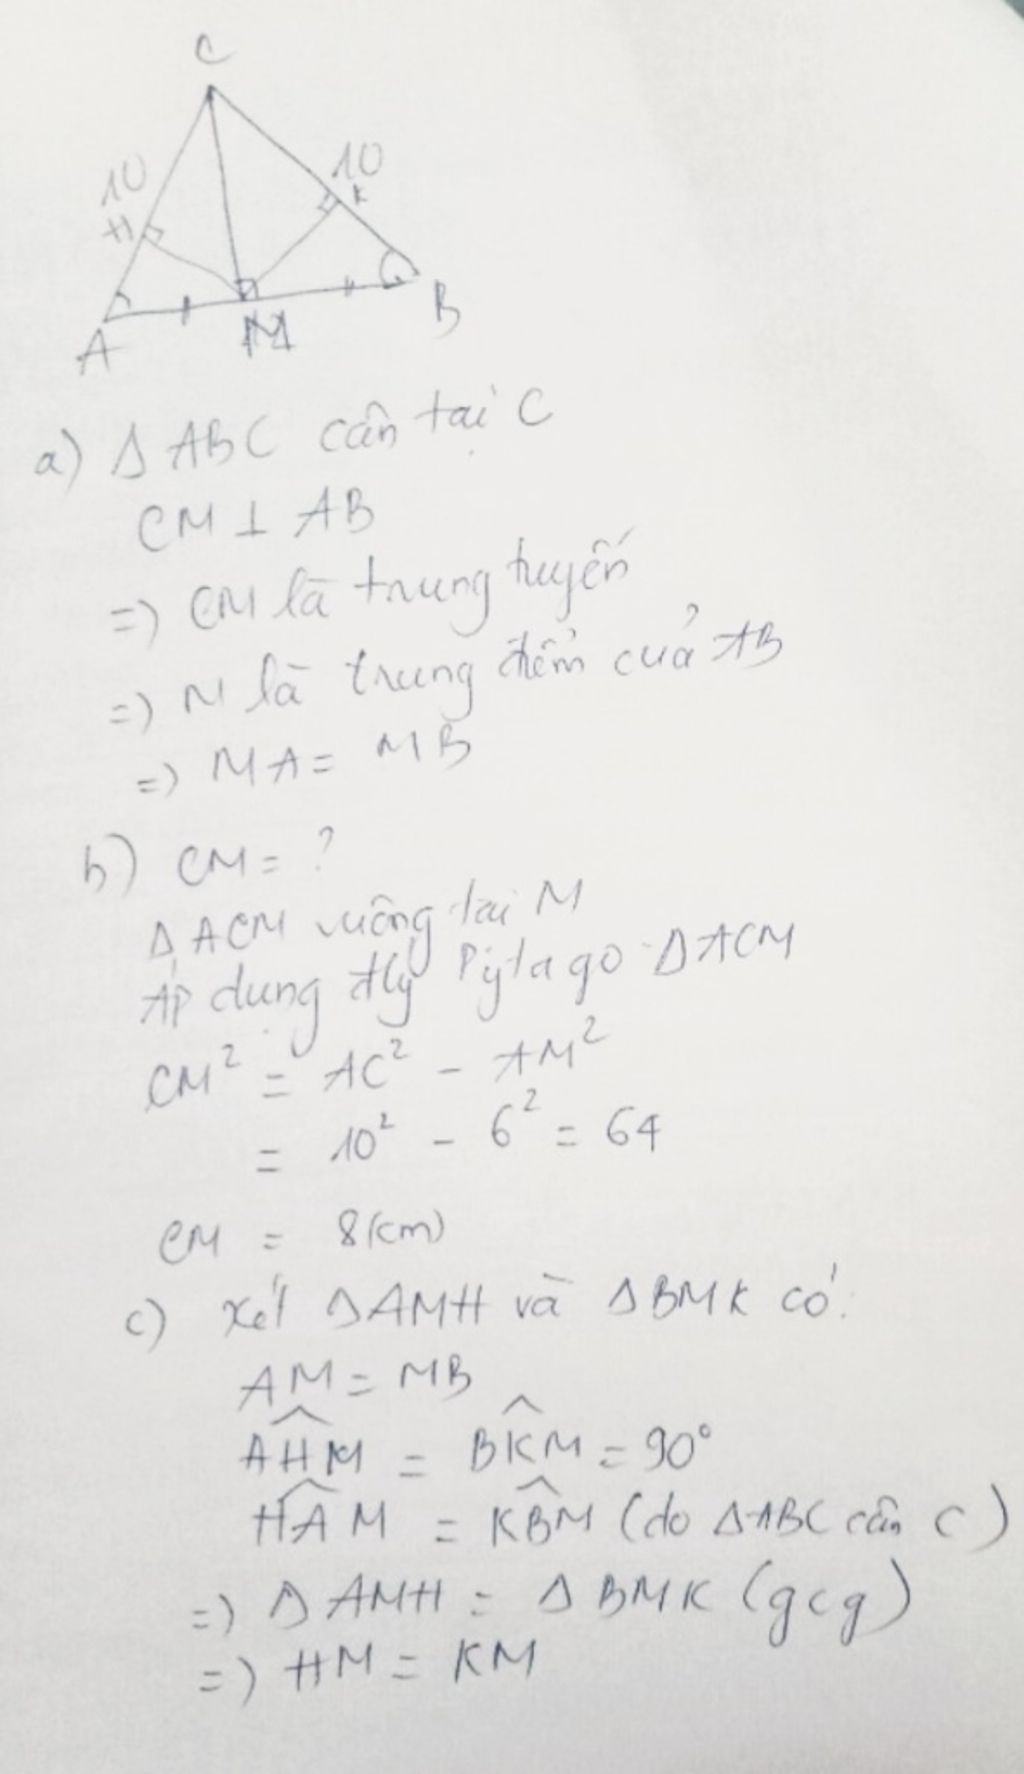 C
10
10
H
K
A
M
B
a) Δ ABC cân tại C
CM ⊥ AB
=) CM là trung tuyến
=) M là trung điểm của AB
=) MA = MB
b) CM = ?
Δ ACM vuông tại M
Áp dụng đlý Pytago ΔACM
CM² = AC² - AM²
= 10² - 6² = 64
CM = 8(cm)
c) Xét ΔAMH và ΔBMK có:
AM = MB
\widehat{AHM} = \widehat{BKM} = 90°
\widehat{HAM} = \widehat{KBM} (do ΔABC cân C)
=) Δ AMH = Δ BMK (gcg)
=) HM = KM